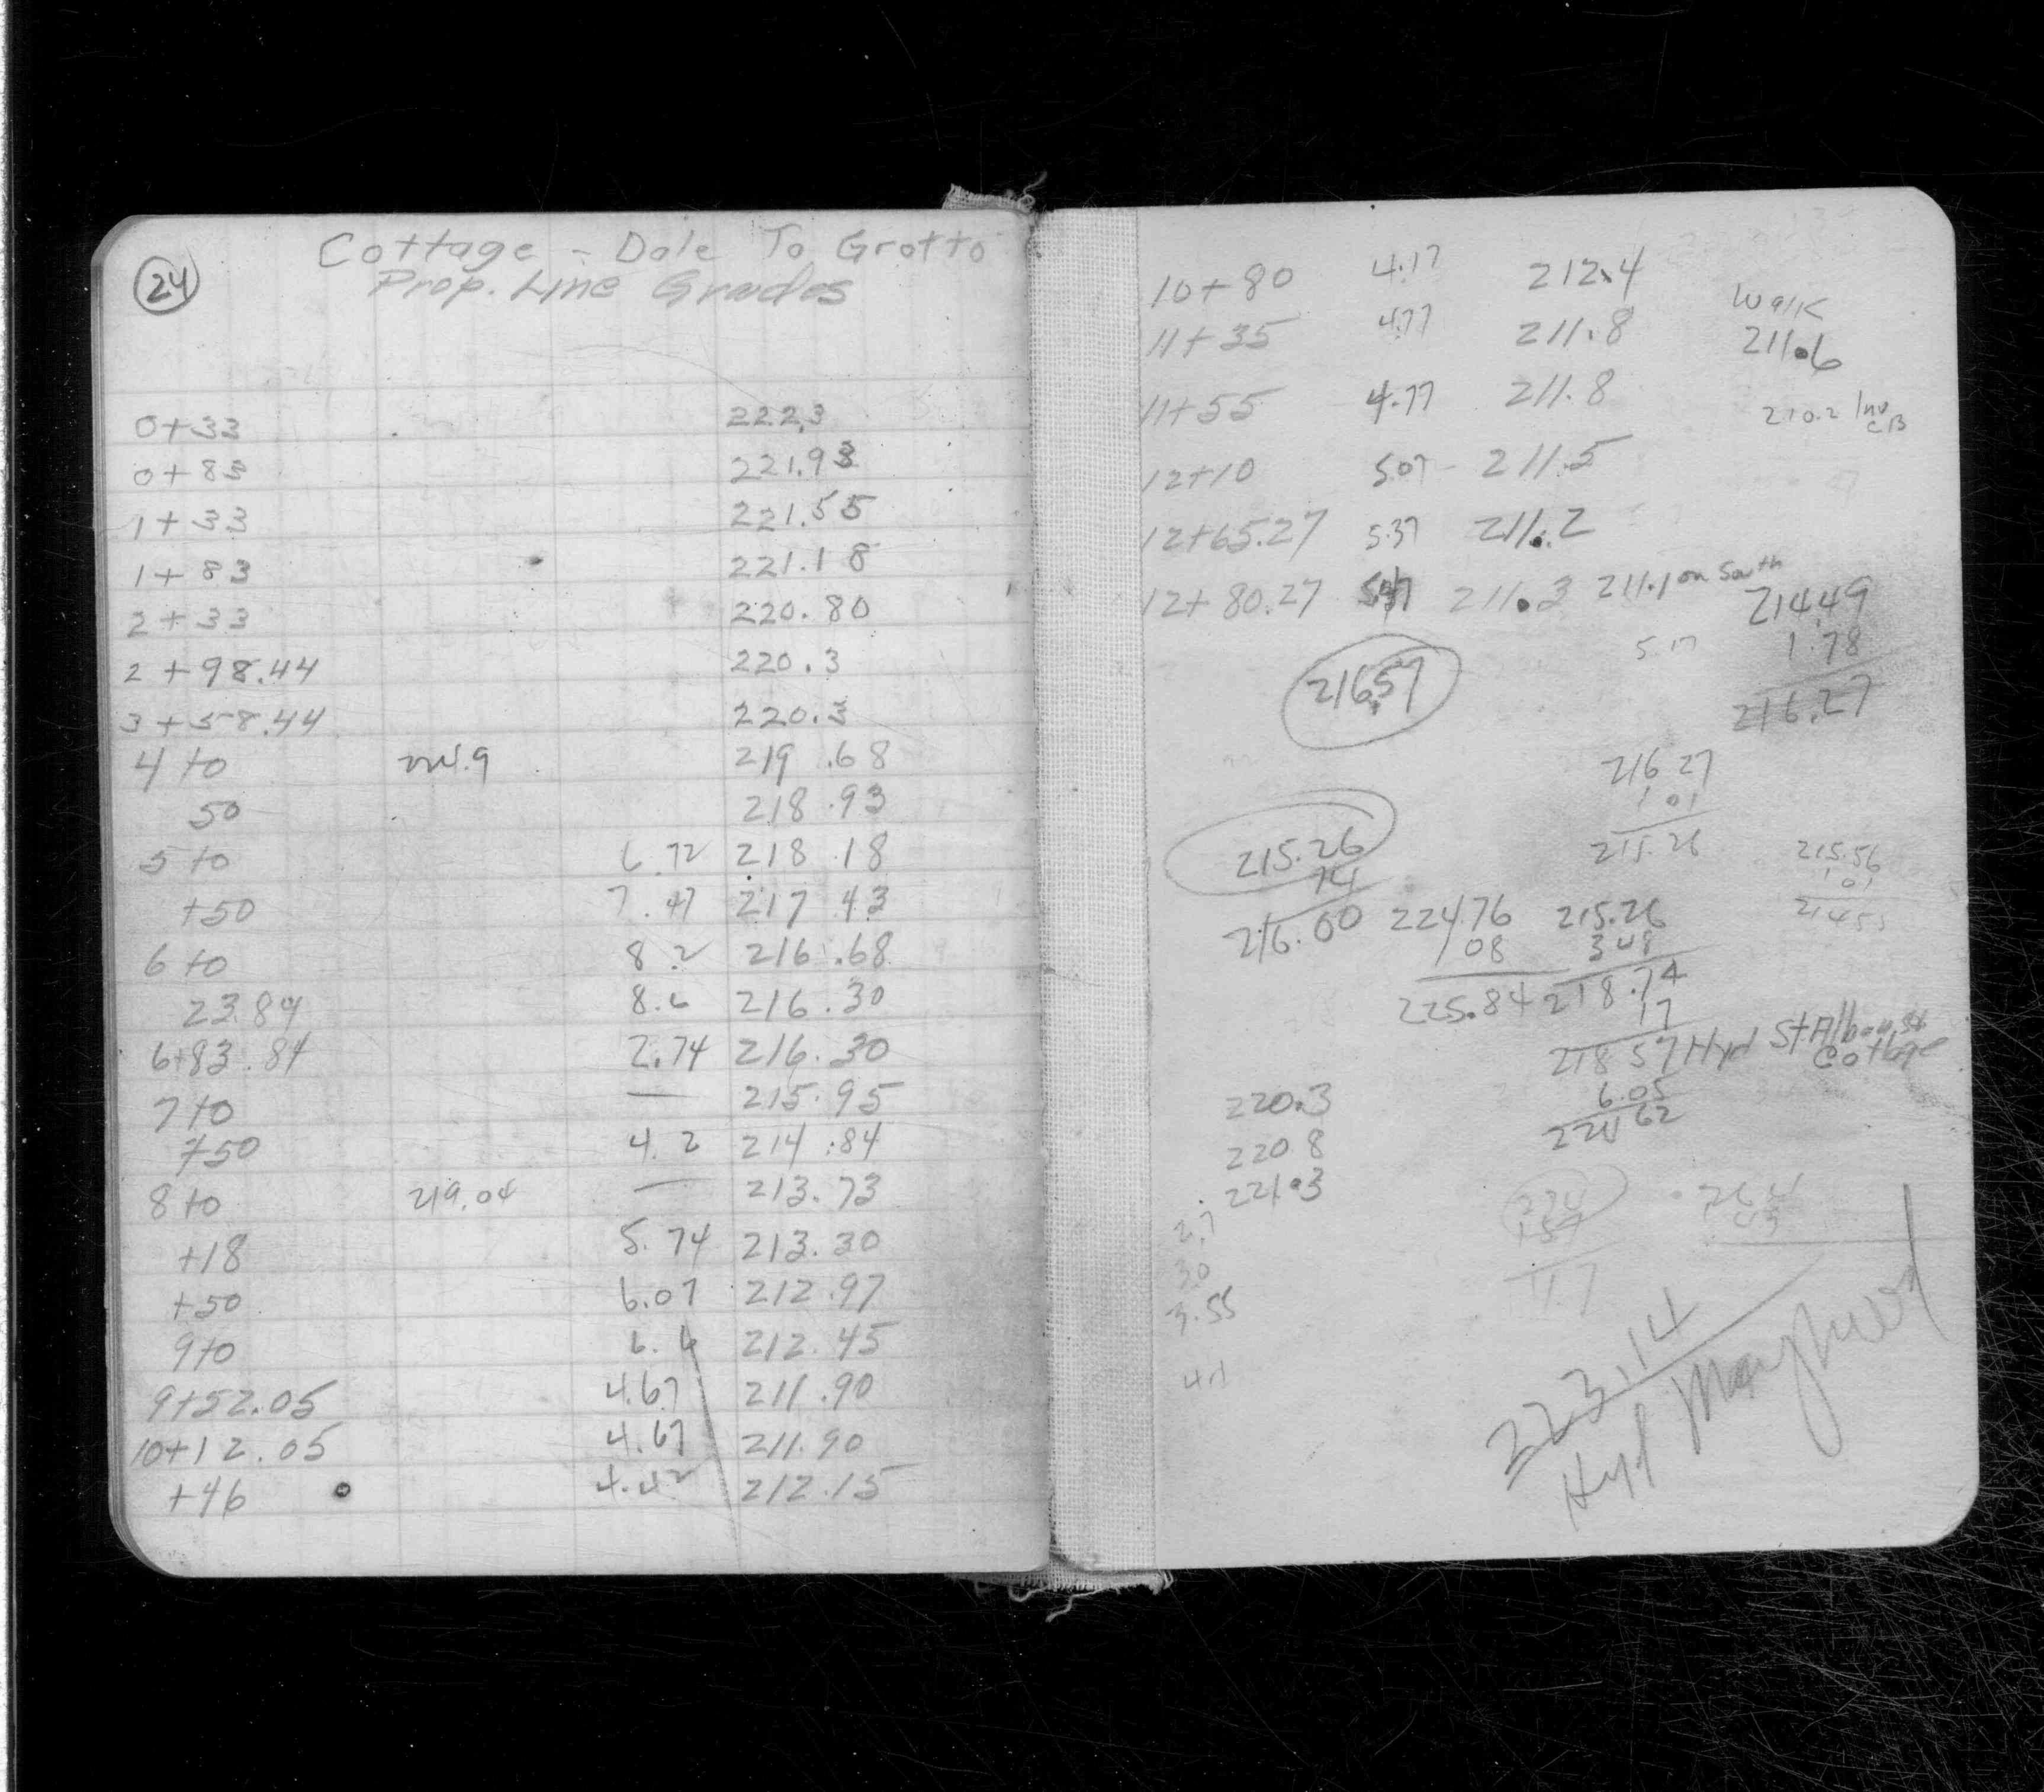 24
Cottage - Dale To Grotto
Prop. Line Grades
0+33 222.3
0+83 221.93
1+33 221.55
1+83 221.18
2+33 220.80
2+98.44 220.3
3+58.44 220.3
4+0 224.9 219.68
50 218.93
5+0 6.72 218.18
+50 7.47 217.43
6+0 8.2 216.68
23.84 8.6 216.30
6+83.84 2.74 216.30
7+0 — 215.95
+50 4.2 214.84
8+0 219.04 — 213.73
+18 5.74 213.30
+50 6.07 212.97
9+0 6.6 212.45
9+52.05 4.67 211.90
10+12.05 4.67 211.90
+46 4.42 212.15
10+80 4.17 212.4
Walk
11+35 4.77 211.8 211.6
11+55 4.77 211.8 210.2 Inv CB
12+10 5.07 - 211.5
12+65.27 5.37 211.2
12+80.27 211.3 211.1 on South
214.49
5.17 1.78
216.57 216.27
216 27
1 01
215.26 215.26
74
216.00
215.56
1 01
214 55
224.76 215.26
1 08 3 48
225.84 218.74
17
218 57 Hyd St Albans St Cottage
6.05
224 62
220.3
220 8
221.3
2.7
3.0
3.55
4.1
223.14
Hyd